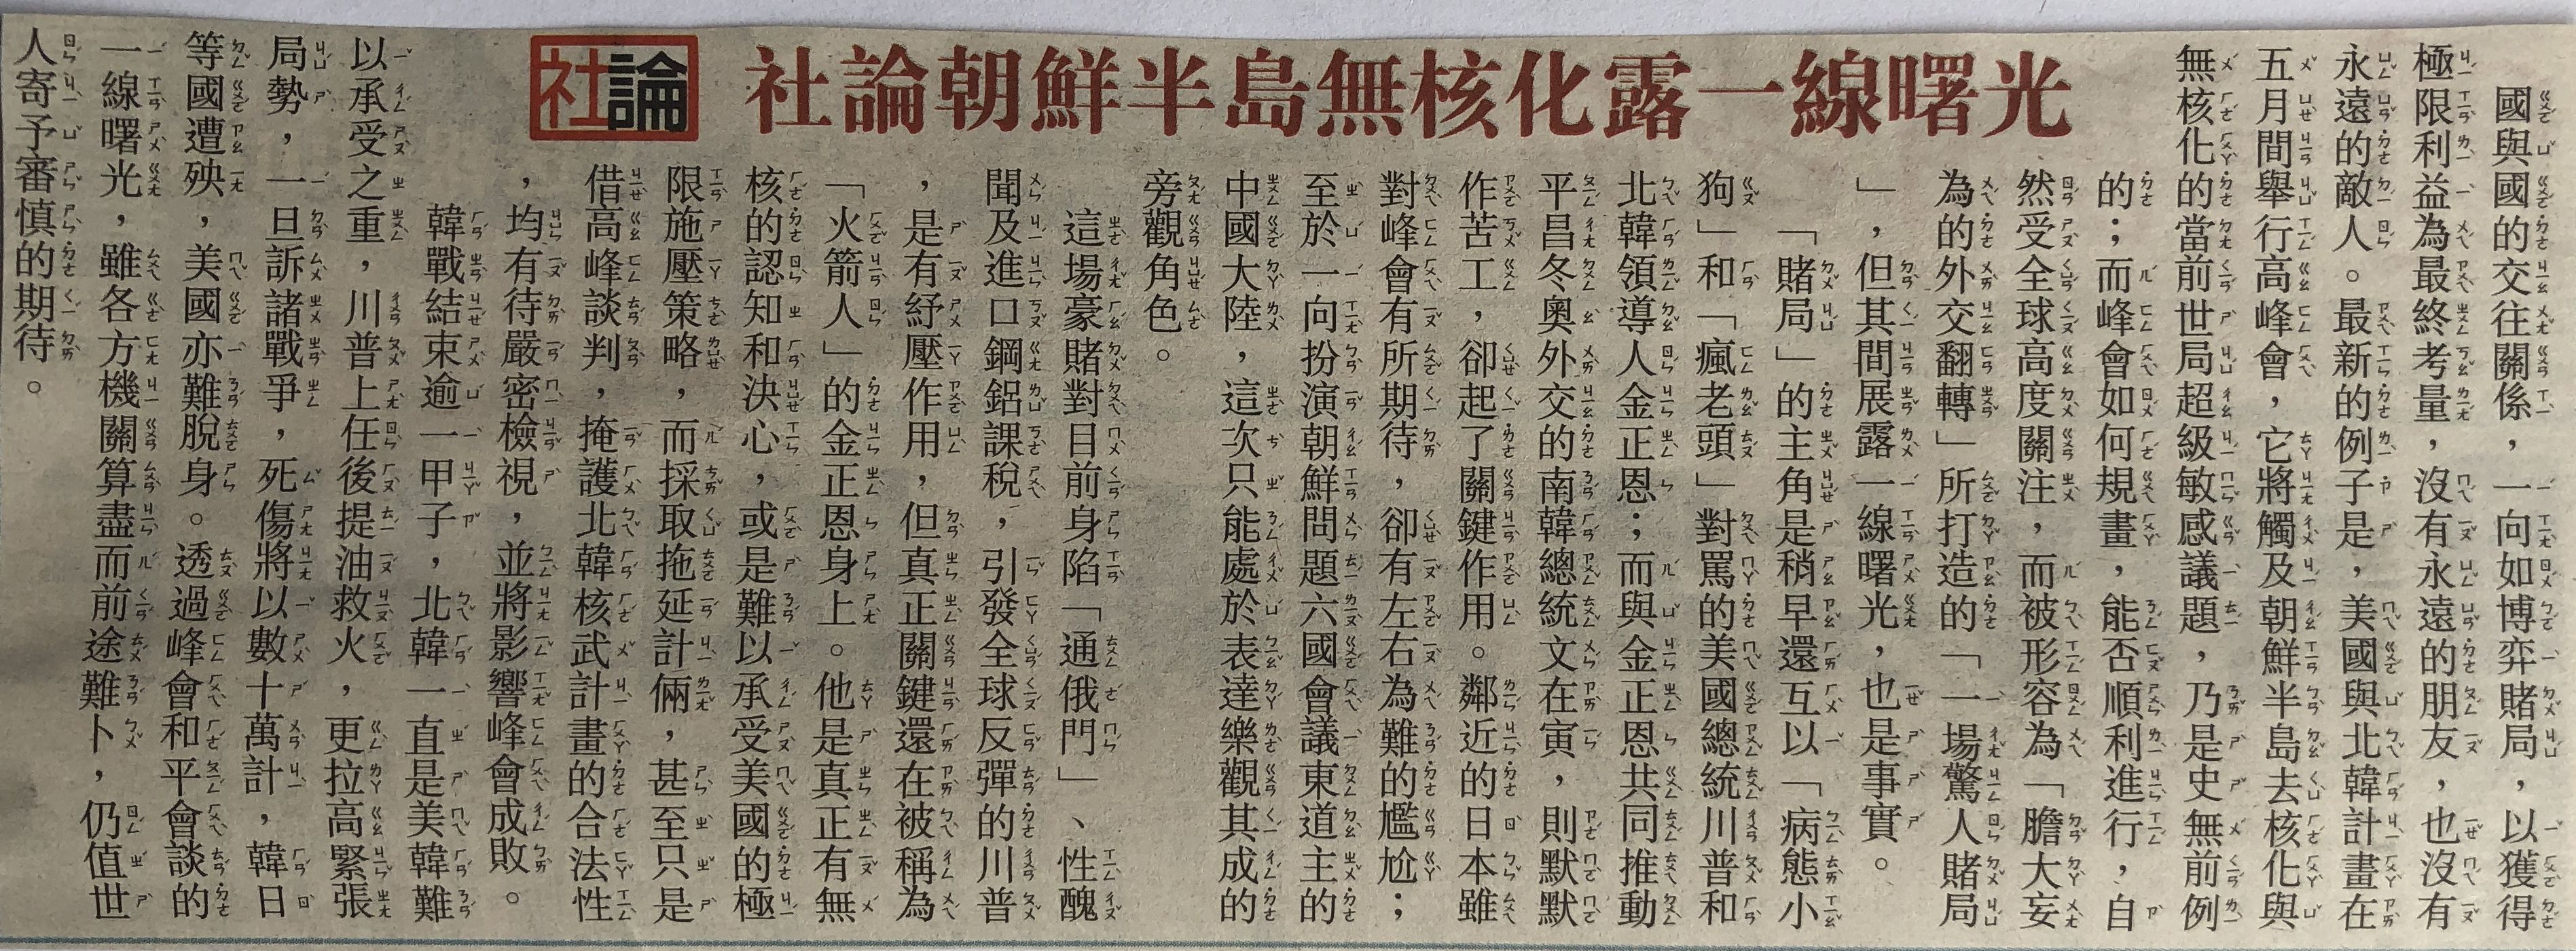 社論朝鮮半島無核化露一線曙光
社論
國與國的交往關係，一向如博弈賭局，以獲得
極限利益為最終考量，沒有永遠的朋友，也沒有
永遠的敵人。最新的例子是，美國與北韓計畫在
五月間舉行高峰會，它將觸及朝鮮半島去核化與
無核化的當前世局超級敏感議題，乃是史無前例
的；而峰會如何規畫，能否順利進行，自
然受全球高度關注，而被形容為「膽大妄
為的外交翻轉」所打造的「一場驚人賭局
」，但其間展露一線曙光，也是事實。
「賭局」的主角是稍早還互以「病態小
狗」和「瘋老頭」對罵的美國總統川普和
北韓領導人金正恩；而與金正恩共同推動
平昌冬奧外交的南韓總統文在寅，則默默
作苦工，卻起了關鍵作用。鄰近的日本雖
對峰會有所期待，卻有左右為難的尷尬；
至於一向扮演朝鮮問題六國會議東道主的
中國大陸，這次只能處於表達樂觀其成的
旁觀角色。
這場豪賭對目前身陷「通俄門」、性醜
聞及進口鋼鋁課稅，引發全球反彈的川普
，是有紓壓作用，但真正關鍵還在被稱為
「火箭人」的金正恩身上。他是真正有無
核的認知和決心，或是難以承受美國的極
限施壓策略，而採取拖延計倆，甚至只是
借高峰談判，掩護北韓核武計畫的合法性
，均有待嚴密檢視，並將影響峰會成敗。
韓戰結束逾一甲子，北韓一直是美韓難
以承受之重，川普上任後提油救火，更拉高緊張
局勢，一旦訴諸戰爭，死傷將以數十萬計，韓日
等國遭殃，美國亦難脫身。透過峰會和平會談的
一線曙光，雖各方機關算盡而前途難卜，仍值世
人寄予審慎的期待。